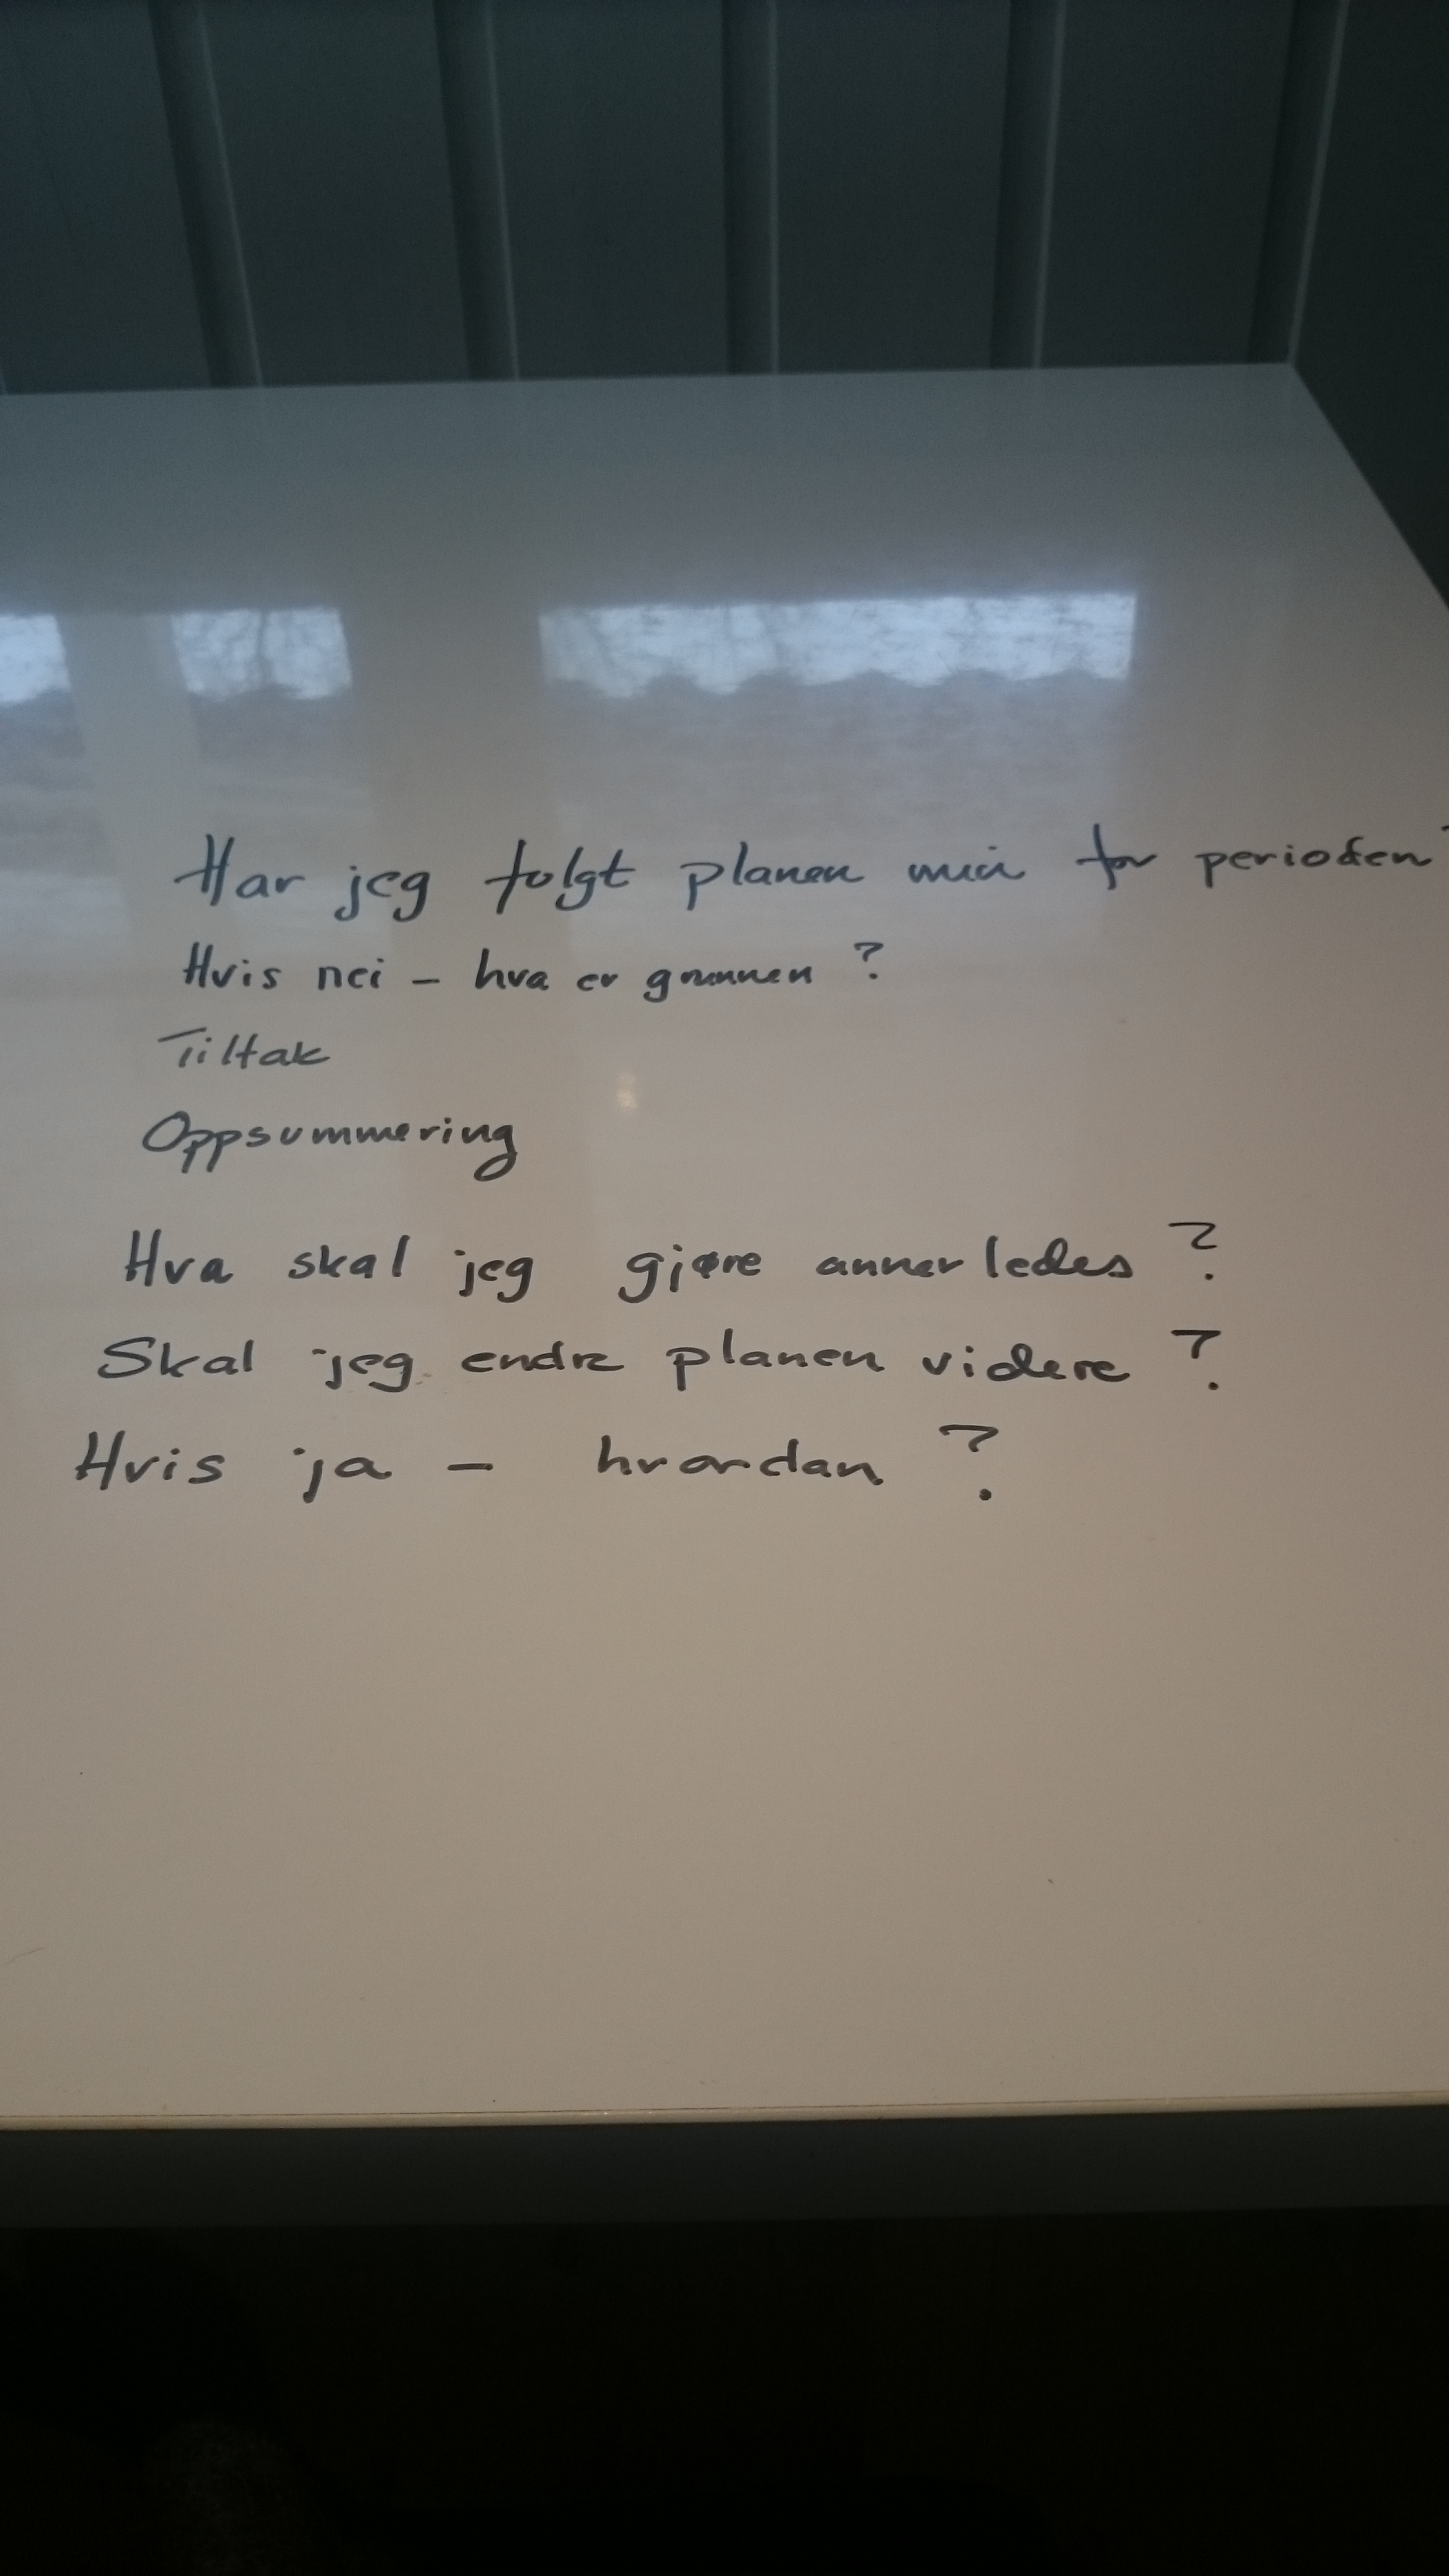 Har jeg fulgt planen min for perioden?
Hvis nei - hva er grunnen?
Tiltak
Oppsummering
Hva skal jeg gjøre annerledes?
Skal jeg endre planen videre?
Hvis ja - hvordan?